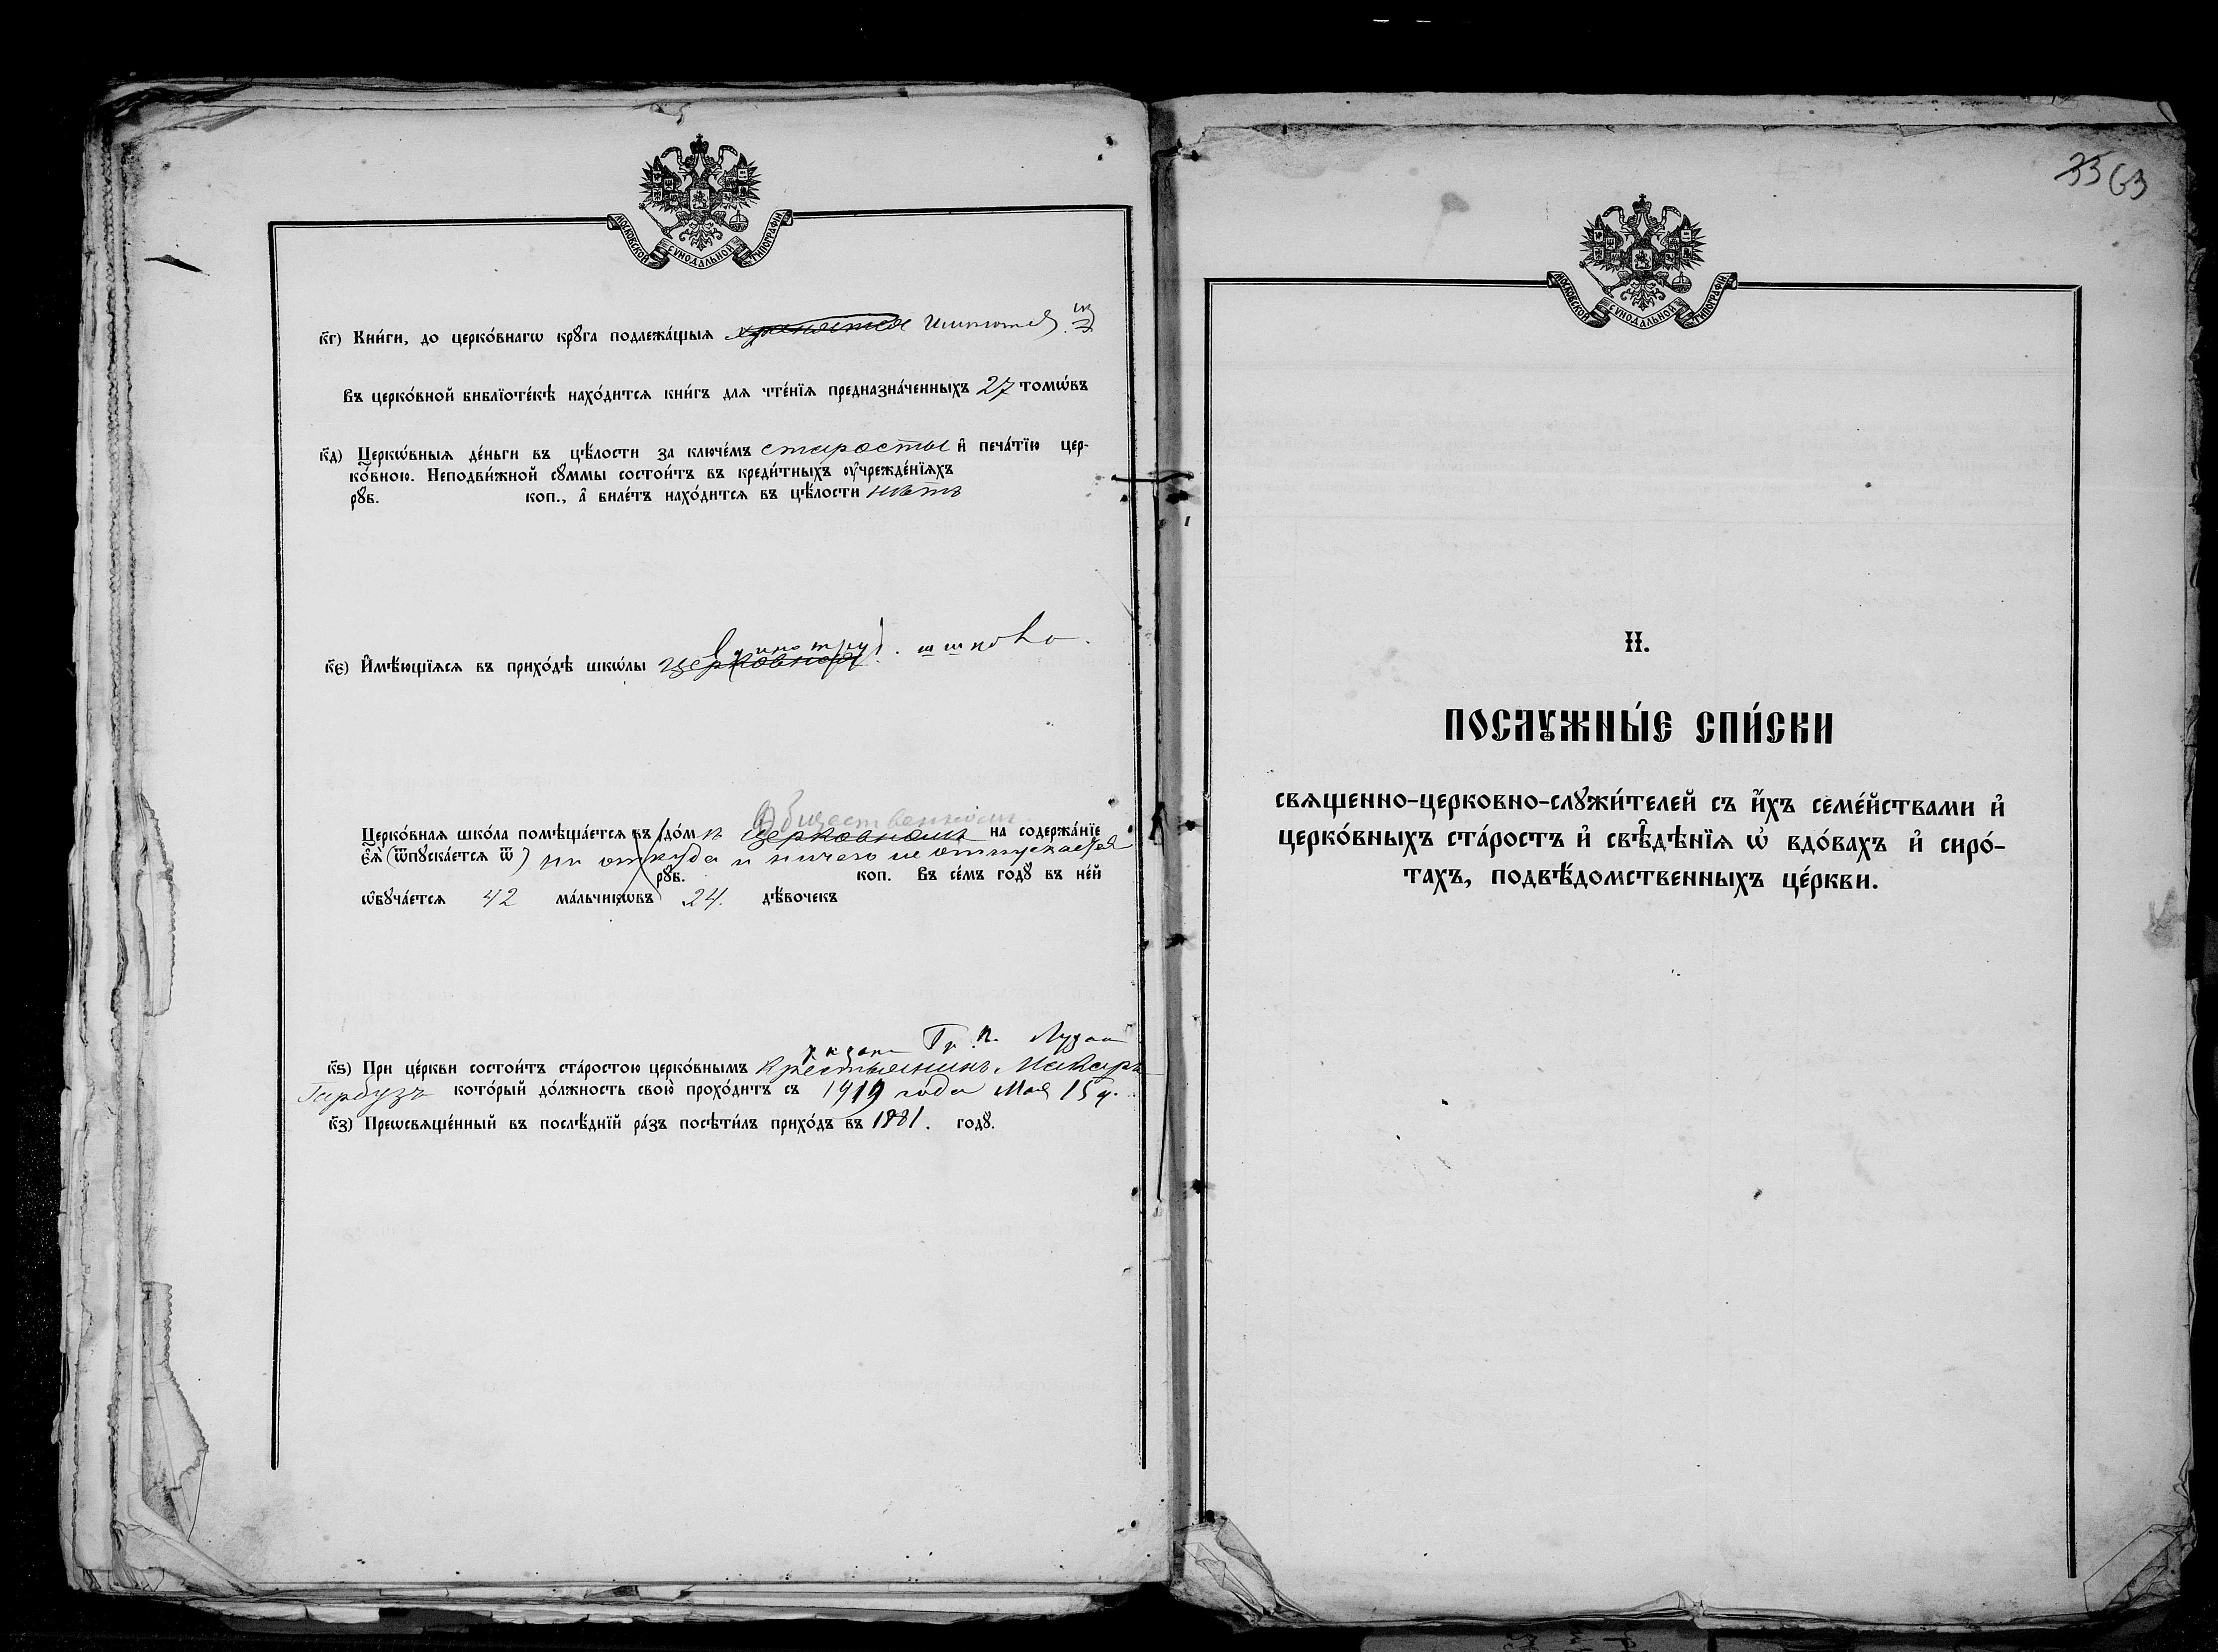 МОСКОВСКОЙ СѴНОДАЛЬНОЙ ТИПОГРАФІИ
к҃г) Кни́ги, до церко́внагѡ крꙋ́га подлежа́щыя хранятся
Въ церко́вной библїоте́кѣ нахо́дится кни́гъ для чте́нїя предназна́ченныхъ 27 томѡ́въ
к҃д) Церкѡ́вныя де́ньги въ цѣ́лости за ключе́мъ старосты и҆ печа́тїю цер-
ко́вною. Неподви́жной сꙋ́ммы состои́тъ въ креди́тныхъ оу҆чрежде́нїяхъ
рꙋб. коп., а҆ биле́тъ нахо́дится въ цѣ́лости нѣтъ
к҃є) И҆мѣ́ющїяся въ прихо́дѣ шкѡ́лы церковная
Общественномъ
Церко́вная шко́ла помѣща́ется въ до́мѣ церковномъ на содержа́нїе
є҆я̀ (ѿпꙋска́ется ѿ) ни откуда и ничего не отпускается
рꙋб. коп. Въ се́мъ годꙋ̀ въ не́й
ѡ҆бꙋча́ется 42 ма́льчикѡвъ 24. дѣ́вочекъ
Гр. П. Лудан
к҃ѕ) При це́ркви состои́тъ ста́ростою церко́внымъ крестьянинъ Макаръ
Гарбузъ кото́рый до́лжность свою̀ прохо́дитъ съ 1919 года Мая 15 д.
к҃з) Преѡсвяще́нный въ послѣ́днїй ра́зъ посѣти́лъ прихо́дъ въ 1881. годꙋ̀.
33 63
МОСКОВСКОЙ СѴНОДАЛЬНОЙ ТИПОГРАФІИ
II.
ПОСЛꙊЖНЫ́Е СПИ́СКИ
священно-церковно-слꙋжи́телей съ и҆́хъ семе́йствами и҆
церко́вныхъ ста́ростъ и҆ свѣ́дѣнїя ѡ҆ вдо́вахъ и҆ сиро́-
тахъ, подвѣ́домственныхъ це́ркви.